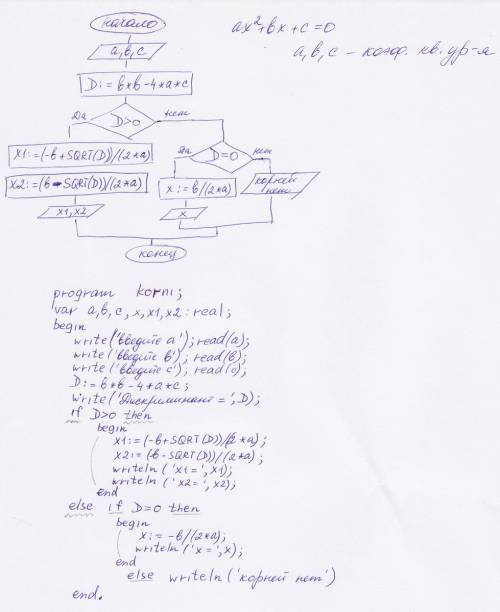 начало
ax²+bx+c=0
a,b,c
a,b,c – коэф. кв. ур-я
D:=b*b-4*a*c
Да
D>0
нет
X1:=(-b+SQRT(D))/(2*a)
Да
D=0
нет
X2:=(b-SQRT(D))/(2*a)
x:=b/(2*a)
корней
нет
x1,x2
x
конец
program korni;
var a,b,c,x,x1,x2:real;
begin
write('введите a');read(a);
write('введите b');read(b);
write('введите c');read(c);
D:=b*b-4*a*c;
write('Дискриминант=',D);
if D>0 then
begin
x1:=(-b+SQRT(D))/(2*a);
x2:=(b-SQRT(D))/(2*a);
writeln('x1=',x1);
writeln('x2=',x2);
end
else if D=0 then
begin
x:=-b/(2*a);
writeln('x=',x);
end
else writeln('корней нет')
end.